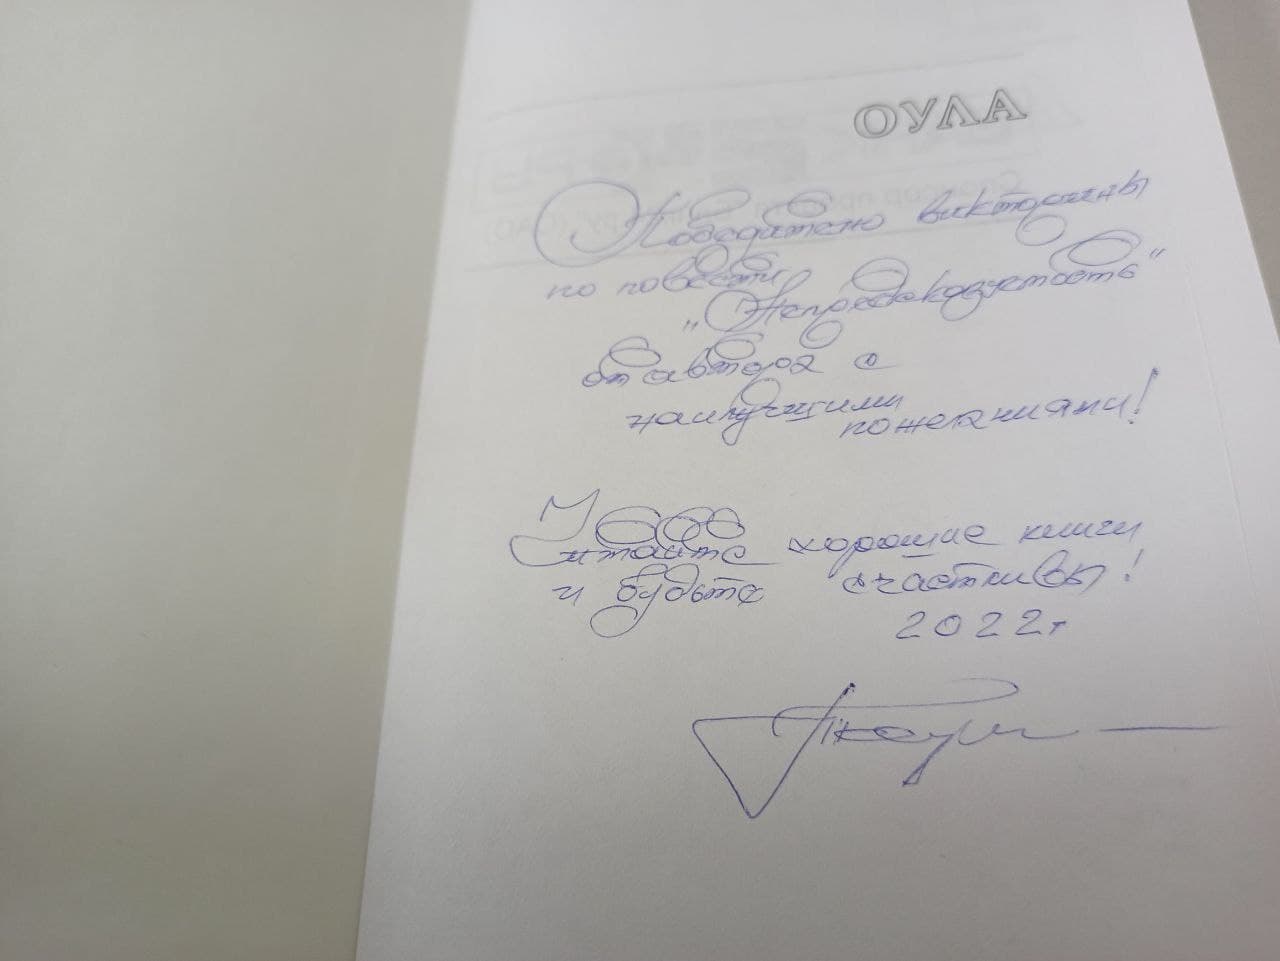 ОУЛА
Победителю викторины
по повести
"Непредсказуемость"
от автора с
наилучшими
пожеланиями!
Читайте хорошие книги
и будьте счастливы!
2022г